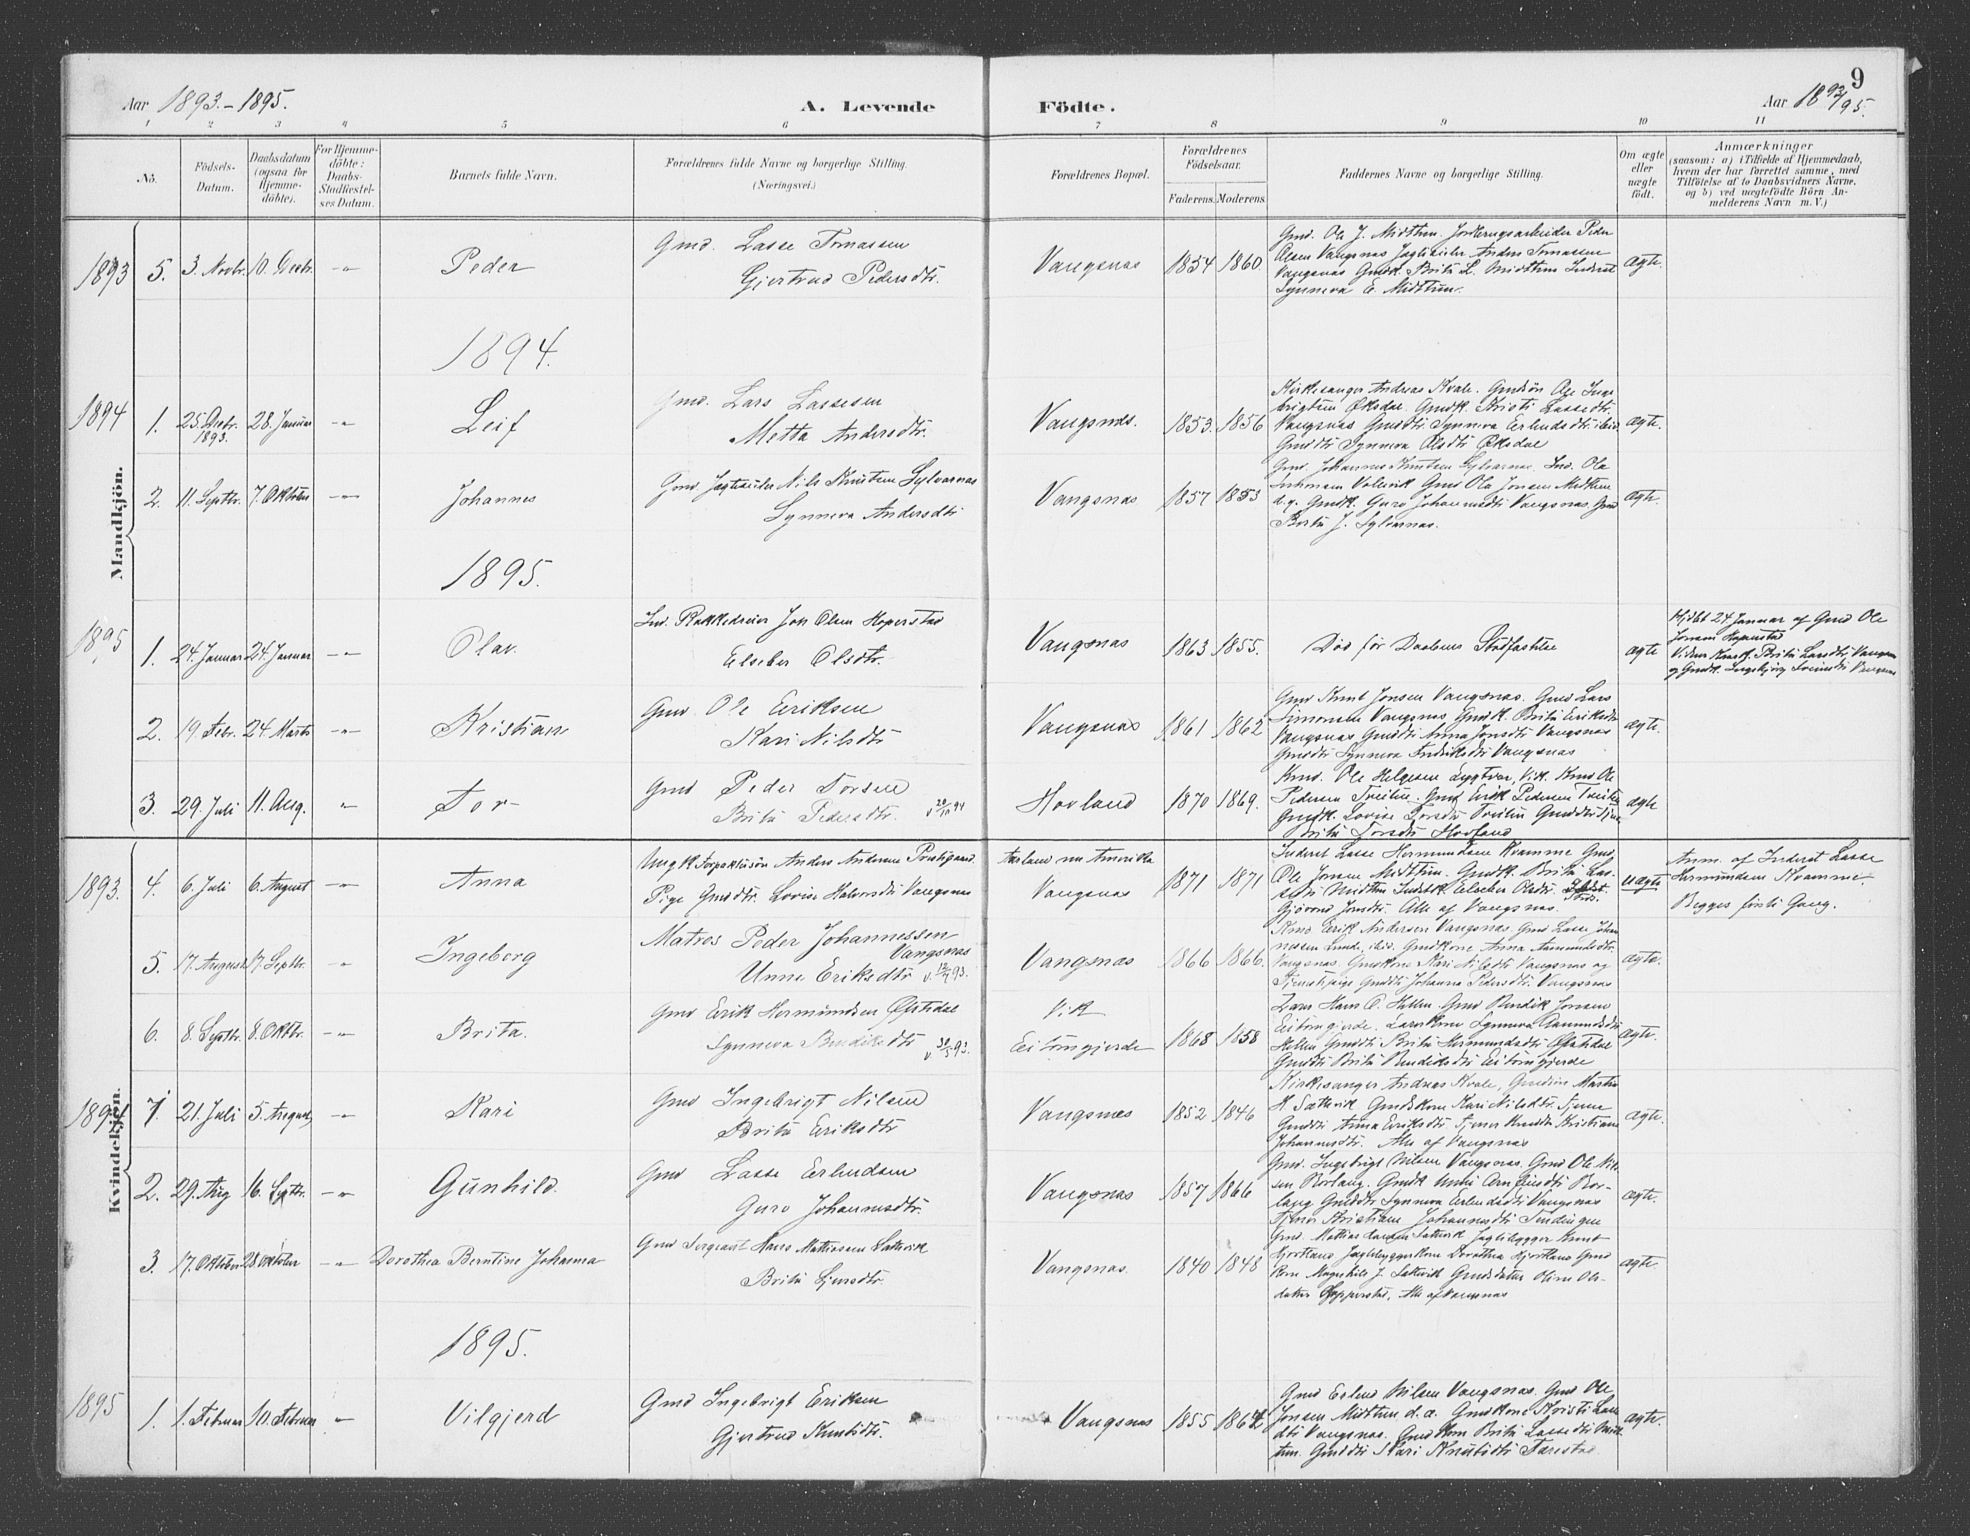 Aar 1893.-1895.
A. Levende Födte.
Aar 1893/95.
9
1 2 3 4 5 6 7 8 9 10 11
No.
Födsels-Datum.
Daabsdatum (ogsaa for Hjemme-döbte).
For Hjemme-döbte: Daabs-Stadfæstel-ses Datum.
Barnets fulde Navn.
Forældrenes fulde Navne og borgerlige Stilling. (Næringsvei.)
Forældrenes Bopæl.
Forældrenes Födselsaar.
Faderens. Moderens.
Faddernes Navne og borgerlige Stilling.
Om ægte eller uægte födt.
Anmærkninger
(saasom: a) i Tilfælde af Hjemmedaab, hvem der har forrettet samme, med Tilföielse af to Daabsvidners Navne, og b) ved uægtefödte Börn An-melderens Navn m. V.)
Mandkjön.
1893 5. 3. Novbr. 10. Decbr. -"- Peder
Gmd. Lasse Tomassen
Gjertrud Pedersdtr.
Vangsnas 1854 1860
Gmd. Ole J. Midttun. Jordbrugsarbeider Peder
Olsen Vangsnas Jagtskipper Anders Tomassen
Vangsnas Gmdk. Brita L. Midttun Inderst
Synneva E. Midttun.
ægte.
1894.
1894 1. 25. Decbr. 1893. 28. Januar -"- Leif
Gmd. Lars Lassesen
Metta Andersdtr.
Vangsnas. 1853. 1856
Kirkesanger Andreas Kvale. Gmdsön Ole Inge-
brigtsen Öksdal Gmdk. Kristi Lassedtr.
Vangsnas Gmddtr Synneva Erlendsdtr ibid.
Gmddtr Synneva Olsdtr Öksdal
ægte.
2. 11. Septbr. 7. Oktober -"- Johannes
Gmd Nils Knutsen Sylvarnas
Synneva Andersdtr
Vangsnas 1857 1853
Gmd. Johannes Knutsen Sylvarnas. Ind. Ola
Gmd Ola Jonsen Midttun
Gmdk. Guro Johannesdtr Vangsnas. Gmd
Brita J. Sylvarnas.
ægte.
1895.
1895 1. 24. Januar 24. Januar -"- Olav
Ind. Jon Olsen Hopperstad
Elseber Olsdtr.
Vangsnas 1863 1855.
Död för Daabens Stadfæstelse
ægte
Hjdbt 24 Januar af Gmd Ole
Jonsen Hopperstad
Brita Lassdtr Vangsnas
og Gmdk. Ingebjörg Vangsnas
2. 19. Febr. 24. Marts -"- Kristian
Gmd. Ole Eriksen
Kari Nilsdtr
Vangsnas 1861 1862
Gmd Knut Jonsen Vangsnas. Gmd Lars
Simonsen Vangsnas Gmdk. Brita Eriksdtr
Vangsnas Gmddtr Anna Jonsdtr Vangsnas
Gmddtr Synneva Fredriksdtr Vangsnas
ægte.
3. 29. Juli 11. Aug. " Tor
Gmd Peder Torsen
Brita Pedersdtr.
Hovland 1870 1869.
Ole Helgesen
Pedersen Gmd Erik Pedersen
Gmdk. Lovise Torsdtr
Brita Torsdtr Hovland
ægte
Kvindekjön.
1893. 4. 6. Juli 6. August -"- Anna
Ungk Anders Andersen
Pige Gmddtr. Lovise Halvorsdtr Vangsnas
Amerika
Vangsnas 1871 1871
Inderst Lasse Hermundsen Kvamme Gmd.
Ole Jonsen Midttun. Gmdk. Brita Las-
sedtr Midttun Inderstk. Elseber Olsdtr.
Gjövond Jonsdtr. Alle af Vangsnas.
uægte
Anm. af Inderst Lasse
Hermundsen Kvamme.
Begges förste Gang.
5. 17. August 17. Septbr. -"- Ingeborg
Matros Peder Johannessen
Vangsnas
Unne Eriksdtr
Vangsnas 1866 1866.
Gmd Erik Andersen Vangsnas. Gmd Lasse Johan-
nessen Lunde, ibid. Gmdkone Anna Aamundsdtr.
Vangsnas. Gmdkone Kari Nilsdtr Vangsnas og
Tjenestpige Gmddtr Johanna Pedersdtr. Vangsnas
ægte.
6. 8. Septbr. 8. Oktbr. -"- Brita.
Gmd Erik Hermundsen Öfstdal
Synneva Bendiksdtr
Vik
Eitungjerde 1868 1858
Hans O. Hellen. Gmd Bendik Jonsen
Eitungjerde. Synneva Aamundsdtr
Hellen Gmddtr Brita Hermundsdtr Öfstdal
Gmddtr Brita Bendiksdtr Eitungjerde
ægte.
1894 1. 21. Juli 5. August -"- Kari
Gmd Ingebrigt Nilsen
Brita Eriksdtr
Vangsnes 1852 1846
Kirkesanger Andreas Kvale, Gmdsön Martin
H. Sætevik Gmdkone Kari Nilsdtr. Tjener
Gmddtr Anna Eriksdtr Tjener Gmddtr Kristiane
Johannesdtr. Alle af Vangsnas
ægte.
2. 29. Aug 16. Septbr. -"- Gunhild.
Gmd Lasse Erlendsen
Guro Johannesdtr.
Vangsnas 1857 1866
Gmd. Ingebrigt Nilsen Vangsnas. Gmd Ole Nil-
sen Borlaug. Gmdk Bor-
laug Gmddtr Synneva Erlendsdtr Vangsnas
Tjener Kristiane Johannesdtr Tendingen
ægte.
3. 17. Oktober 28. Oktober -"- Dorothea Berntine Johanna
Gmd Sergeant Hans Mathiassen Sætevik
Brita Sjursdtr
Vangsnas. 1840 1848
Gmd. Mathias Hansen Sætevik Jagtbygger Knut
Hjortland Jagtbyggerkone Dorothea Hjortland Gmd
kone Magnhild J. Sætevik Gmddatter Oline Ols-
datter Hopperstad. Alle af Vangsnas
ægte
1895.
1895 1. 1. Februar 10. Februar " Vilgjerd
Gmd Ingebrigt Eriksen
Gjertrud Knutsdtr.
Vangsnas 1855 1862
Gmd Erlend Nilsen Vangsnas. Gmd Ole
Jonsen Midttun d. a. Gmdkone Kristi Lasse-
dtr Vangsnas. Gmdkone Brita Lassedtr Midt-
tun. Gmddtr Kari Knutsdtr Farestad
ægte.